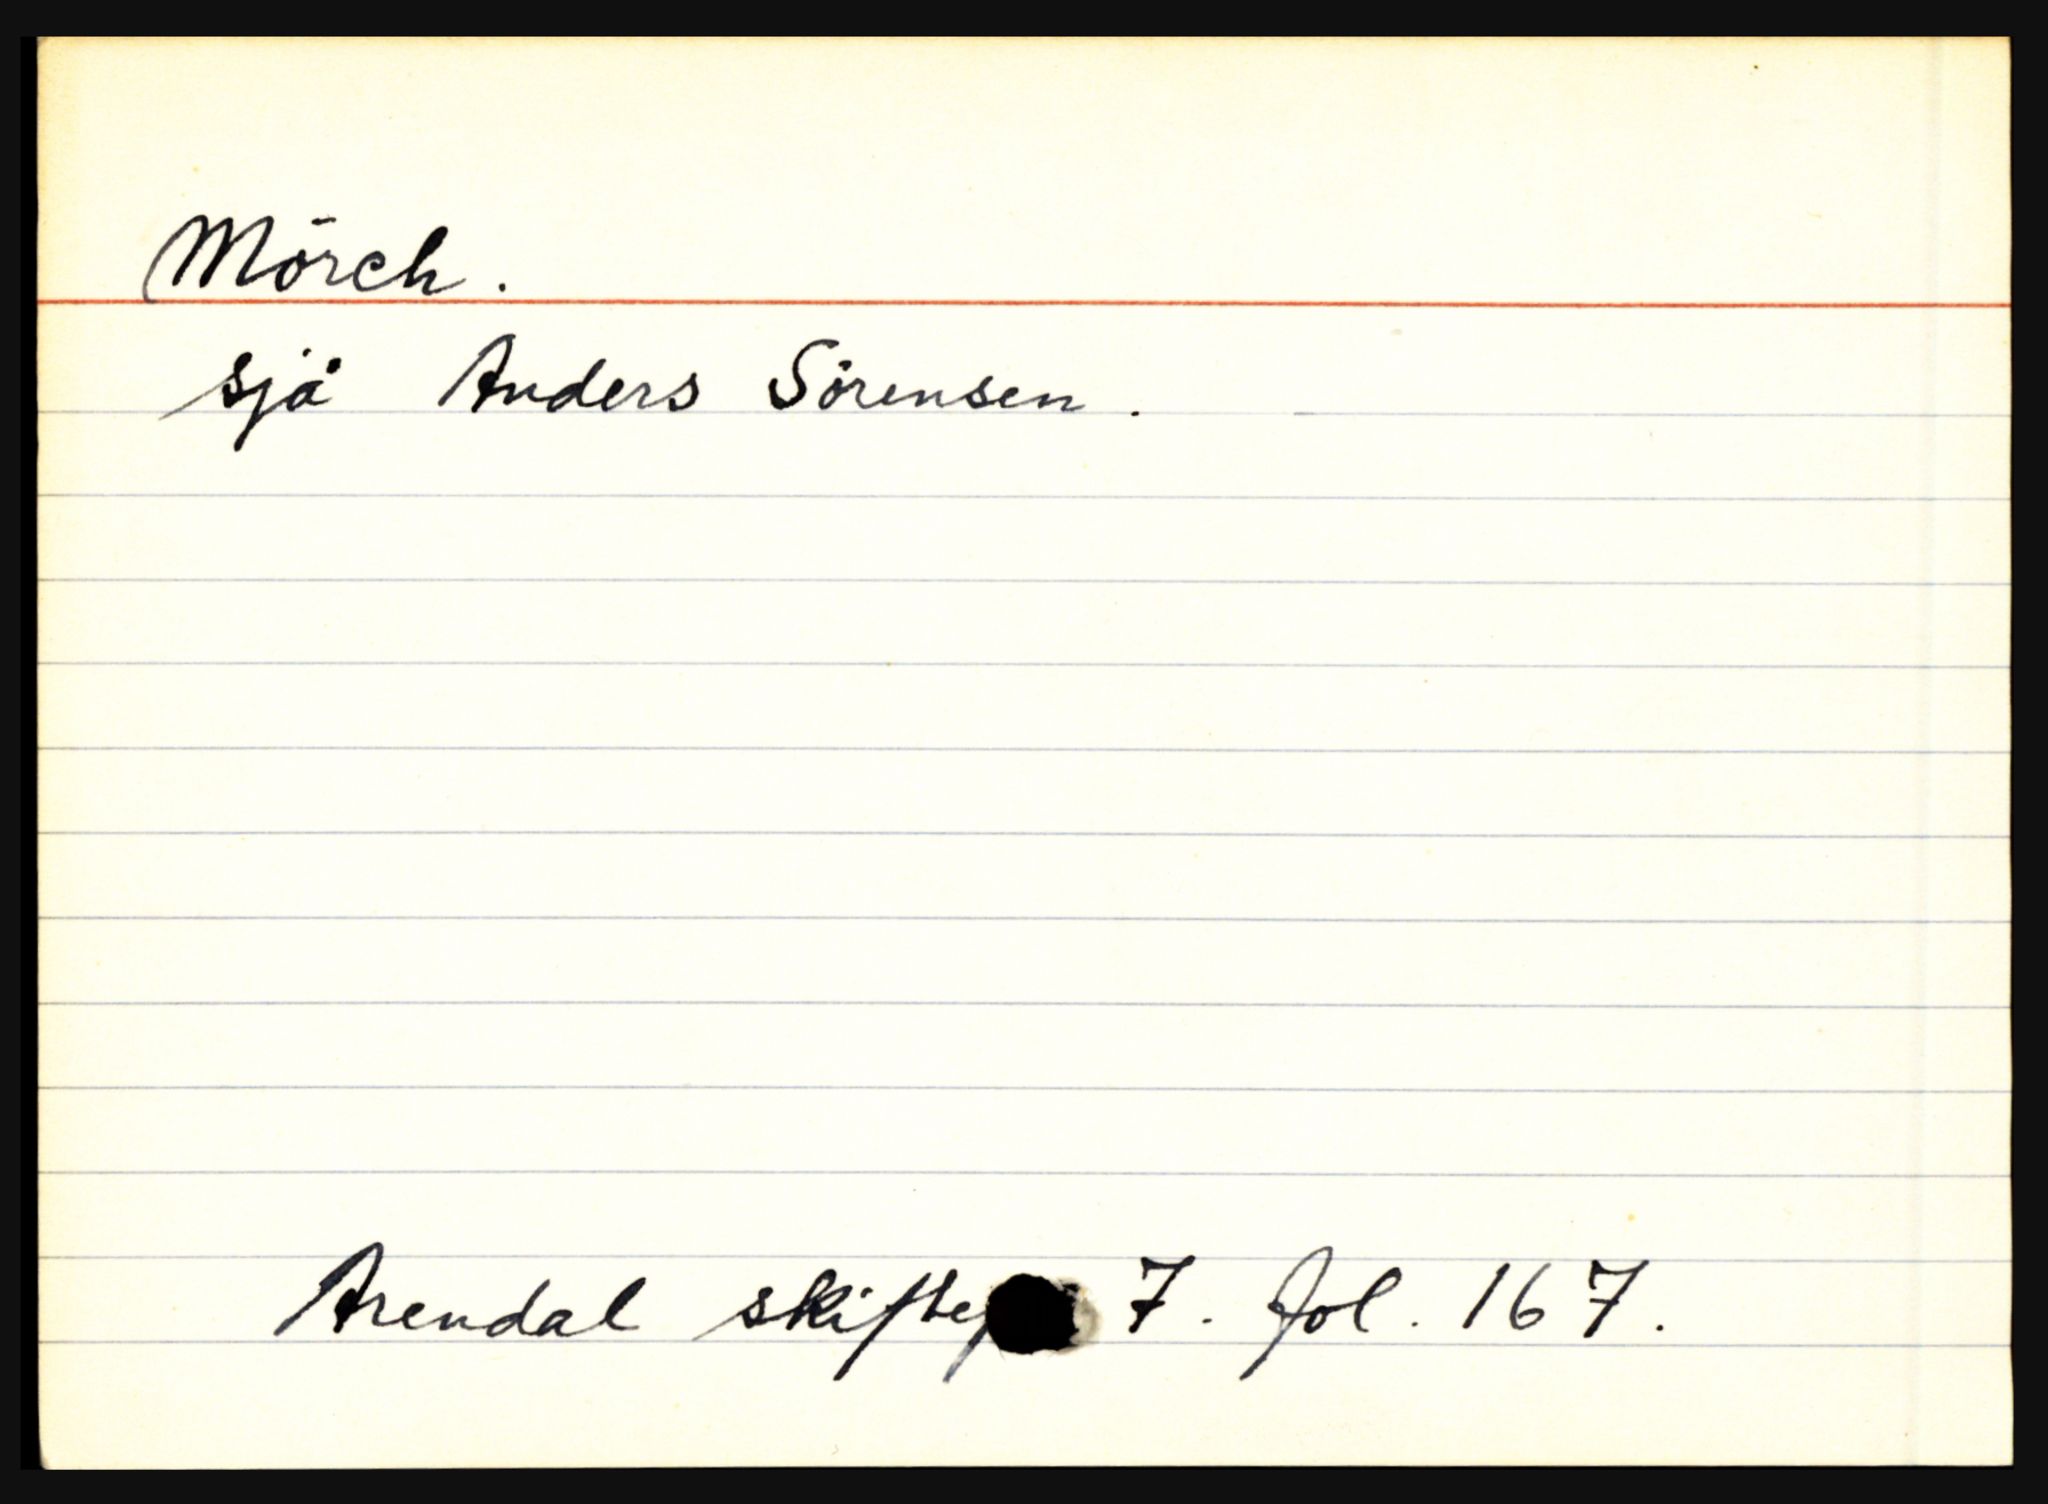 Mörch.
sjå Anders Sörensen.
Arendal 7. fol. 167.